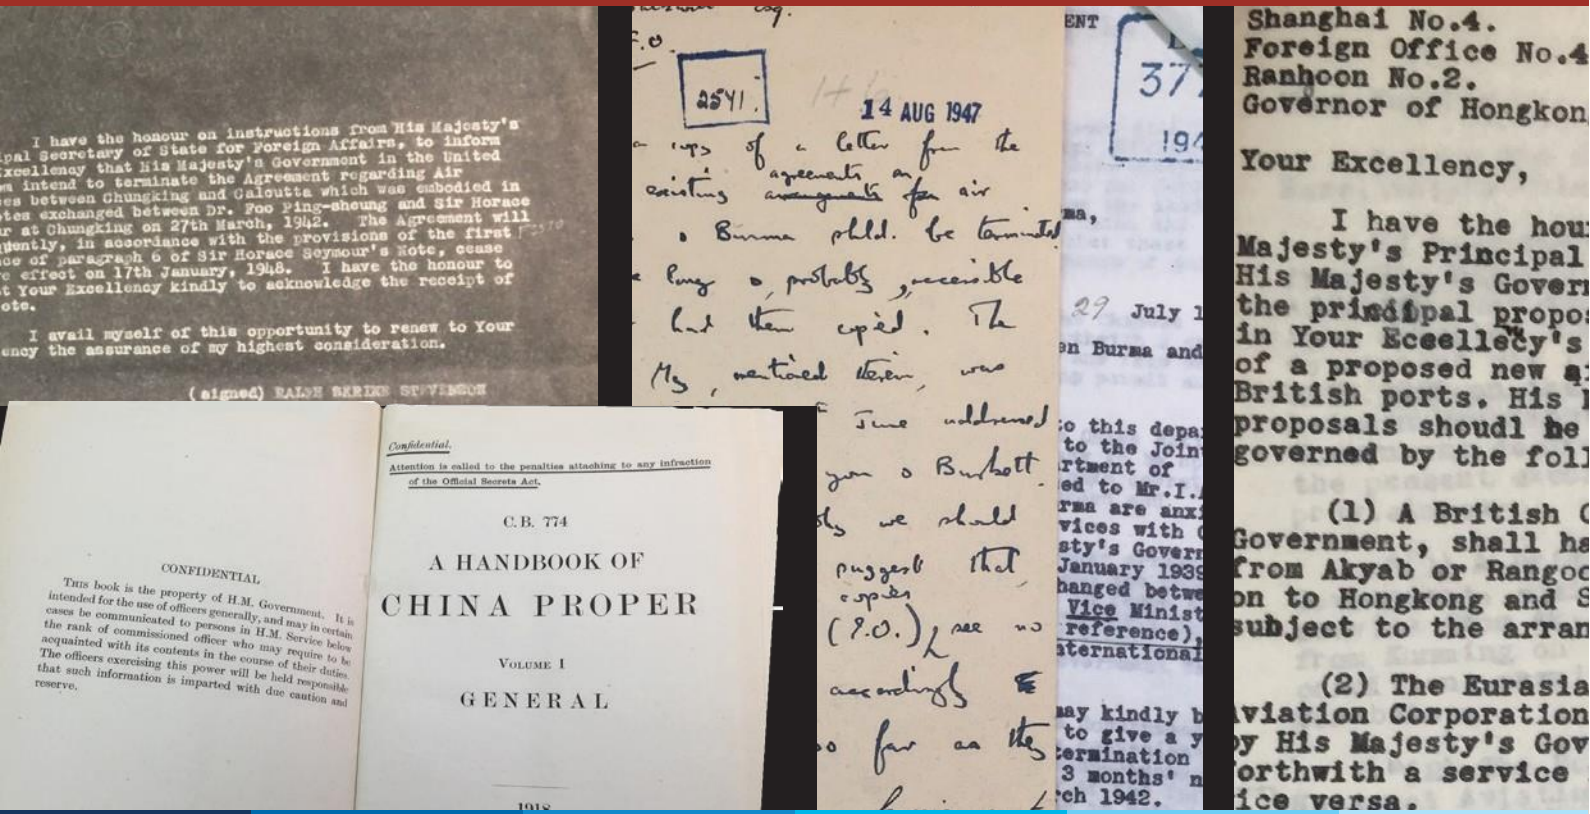 I have the honour on instructions from His Majesty's
pal Secretary of State for Foreign Affairs, to inform
xcellency that His Majesty's Government in the United
m intend to terminate the Agreement regarding Air
es between Chungking and Calcutta which was embodied in
tes exchanged between Dr. Foo Ping-sheung and Sir Horace
ur at Chungking on 27th March, 1942. The Agreement will
quently, in accordance with the provisions of the first
ce of paragraph 6 of Sir Horace Seymour's Note, cease
e effect on 17th January, 1948. I have the honour to
t Your Excellency kindly to acknowledge the receipt of
ote.
I avail myself of this opportunity to renew to Your
ency the assurance of my highest consideration.
(signed) RALPH SKRINE STEVENSON
CONFIDENTIAL
This book is the property of H.M. Government. It is
intended for the use of officers generally, and may in certain
cases be communicated to persons in H.M. Service below
the rank of commissioned officer who may require to be
acquainted with its contents in the course of their duties.
The officers exercising this power will be held responsible
that such information is imparted with due caution and
reserve.
Confidential.
Attention is called to the penalties attaching to any infraction
of the Official Secrets Act.
C.B. 774
A HANDBOOK OF
CHINA PROPER
VOLUME I
GENERAL
1918
Esq.
F.O.
2541
14 AUG 1947
a copy of a letter from the
agreements on
existing arrangements for air
Burma shld. be terminated
long probably accessible
had them copied. The
mentioned therein, was
June addressed
you Burbett
we should
suggest that
copies
see no
accordingly
so far as the
ENT
37
194
ma,
29 July 1
en Burma and
to this depa
to the Join
rtment of
ed to Mr.I.
rma are anxi
vices with C
sty's Govern
January 1939
hanged betwe
Vice Minist
reference),
nternational
may kindly b
to give a y
termination
3 months' n
rch 1942.
Shanghai No.4.
Foreign Office No.4
Ranhoon No.2.
Governor of Hongkon
Your Excellency,
I have the hou
Majesty's Principal
His Majesty's Govern
the prindipal propos
in Your Eceellecy's
of a proposed new ai
British ports. His
proposals shoudl be
governed by the foll
(1) A British C
Government, shall ha
from Akyab or Rangoo
on to Hongkong and S
subject to the arran
(2) The Eurasia
Aviation Corporation
by His Majesty's Gov
forthwith a service
ice versa.